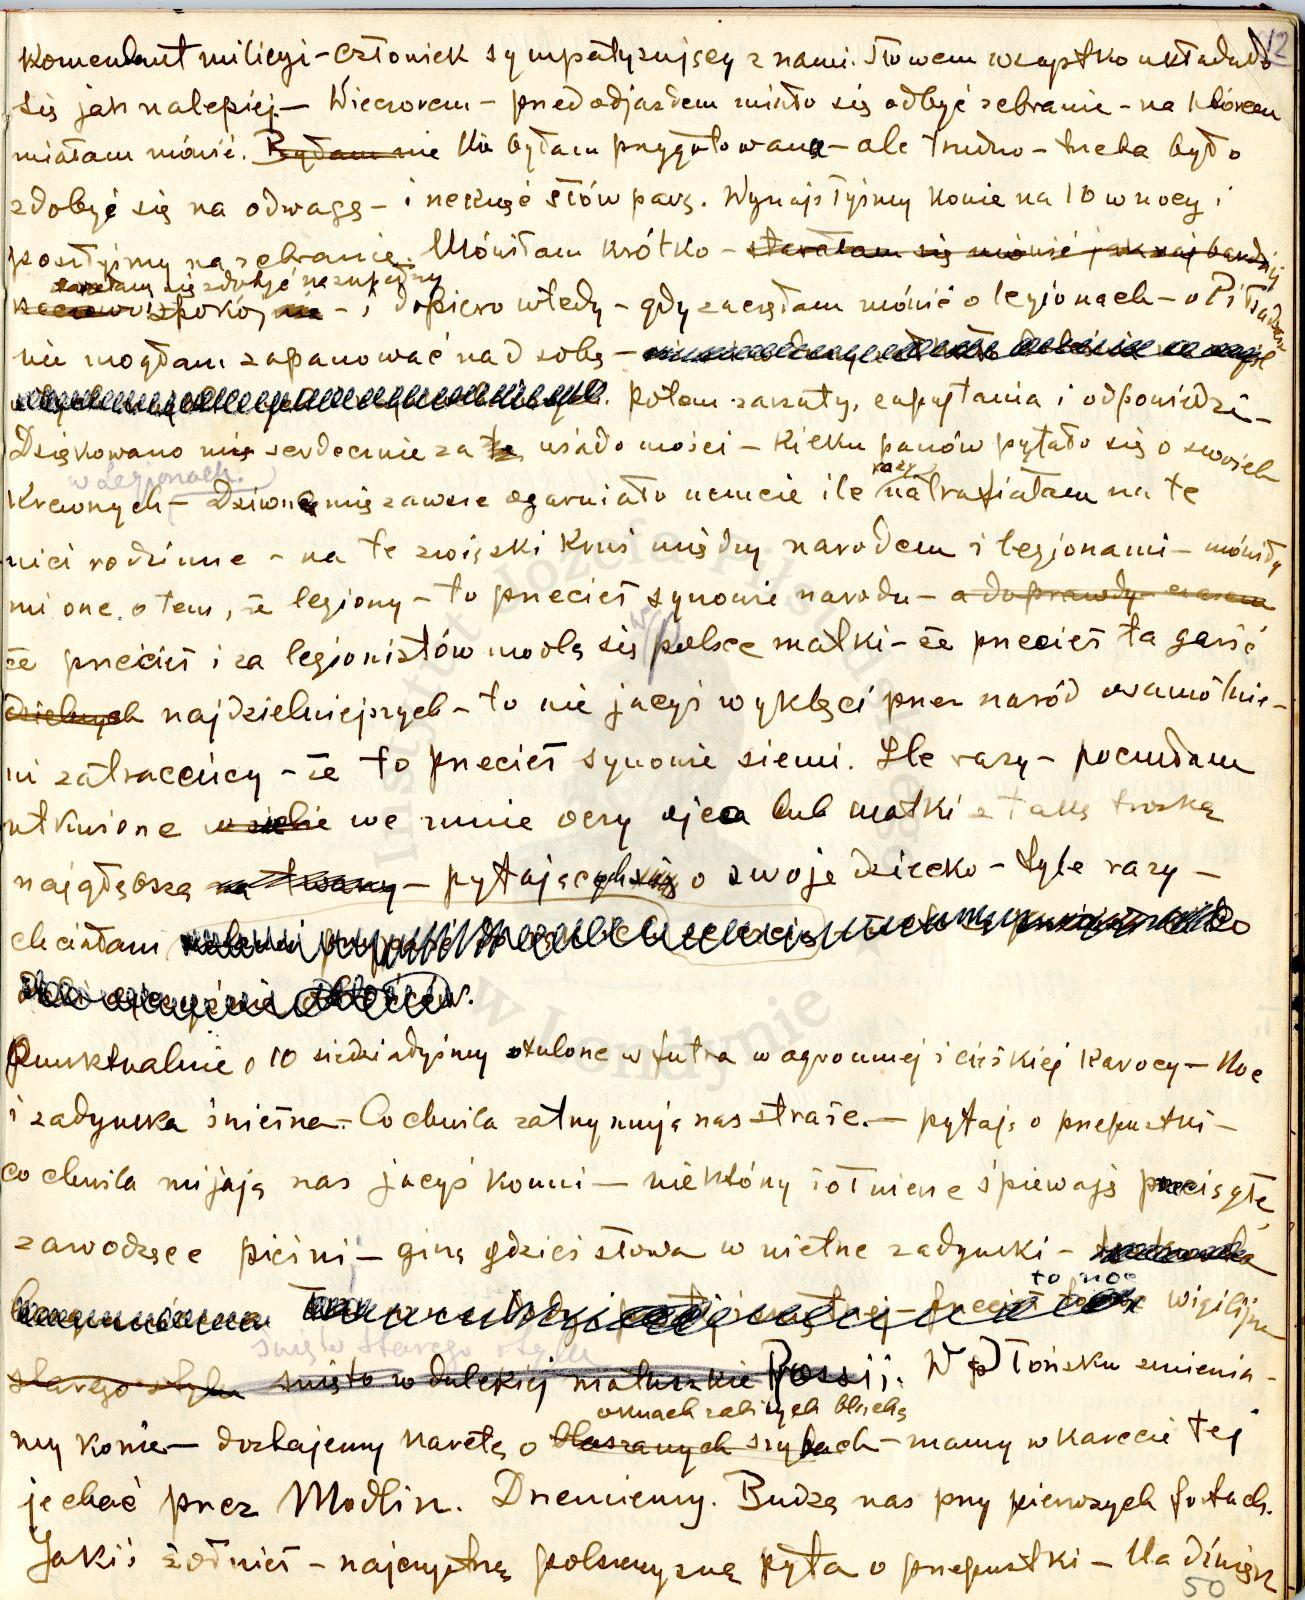 12
Komendant milicyi – człowiek sympatyzujący z nami. Słowem wszystko układało
się jak nalepiej. – Wieczorem – przed odjazdem miało się odbyć zebranie – na którem
miałam mówić. Byłam nie Nie byłam przygotowana – ale trudno – trzeba było
zdobyć się na odwagę – i rzec słów parę. Wynajęłyśmy konie na 10 w nocy i
poszłyśmy na zebranie. Mówiłam krótko – starałam się mówić jak najbardziej
starałam się zdobyć na zupełny
spokój – i dopiero wtedy – gdy zaczęłam mówić o legjonach – o Piłsudskim
nie mogłam zapanować nad sobą –
potem zarzuty, zapytania i odpowiedzi –
Dziękowano mię serdecznie za te wiadomości – kilku panów pytało się o swoich
w Legjonach.
krewnych – Dziwne mię zawsze ogarniało uczucie ile razy natrafiałam na te
nici rodzinne – na te związki krwi między narodem i legjonami – mówiły
mi one o tem, że legiony – to przecież synowie narodu – a doprawdy czasem
że przecież i za legionistów modlą się w Polsce matki – że przecież ta garść
dzielnych najdzielniejszych – to nie jacyś wyklęci przez naród osamotnie-
ni zatraceńcy – że to przecież synowie ziemi. Ile razy – poczułam
utkwione w siebie we mnie oczy ojca lub matki z taką troską
najgłębszą na twarzy – pytających się o swoje dziecko – tyle razy –
chciałam
Punktualnie o 10 siedziałyśmy otulone w futra w ogromnej i ciężkiej karocy – Noc
i zadymka śnieżna. – Co chwila zatrzymują nas straże. – pytają o przepustki –
co chwila mijają nas jacyś konni – niektórzy żołnierze śpiewają przeciągłe
zawodzące pieśni – giną gdzieś słowa w wietrze zadymki –
to noc wigilijna
święto starego stylu
starego stylu święto w dalekiej matuszkie Rossij. W Płońsku zmienia-
my konie – dostajemy karetę o blaszanych szybach – mamy w karecie tej
oknach zabitych blachą
jechać przez Modlin. Drzemiemy. Budzą nas przy pierwszych fortach.
Jakiś żołnierz – najczystszą polszczyzną pyta o przepustki – Na dźwięk
50
Instytut Józefa Piłsudskiego w Londynie